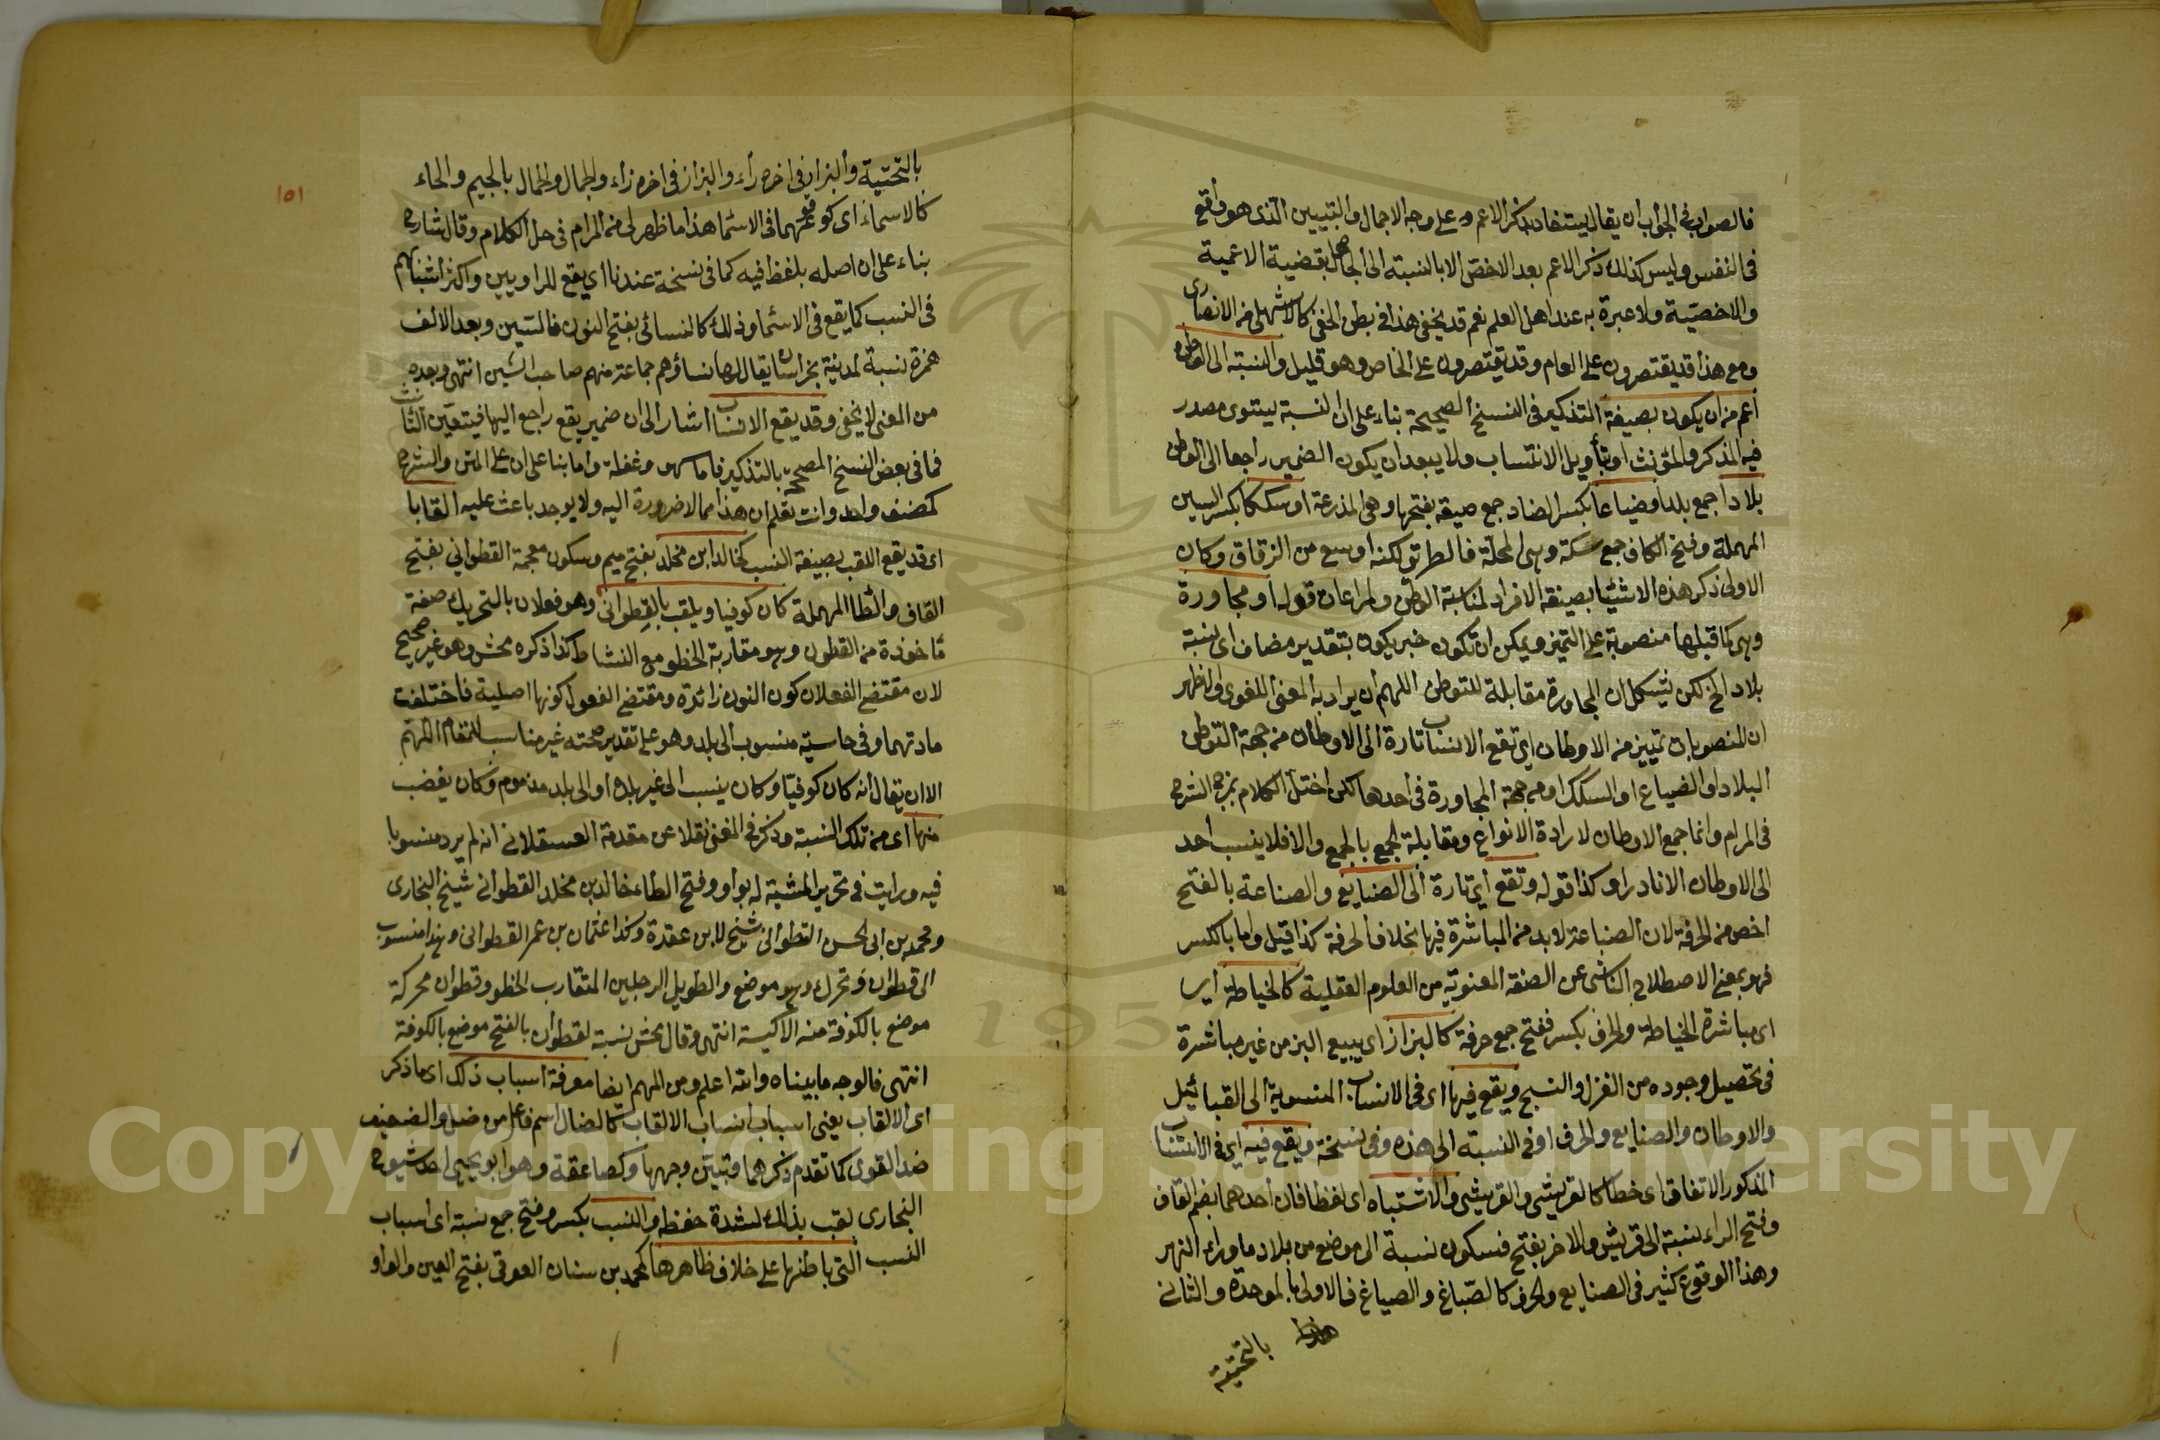 فالصواب في الجواب ان يقال يستفاد بذكر الاعم وعلى وجه الاجمال والتبيين الذى هو أوقع
في النفس وليس كذلك ذكر الاعم بعد الاخص الا بالنسبة الى الجاهل بقضية الاعمية
والاخصيّة ولا عبرة به عند اهل العلم نعم قد يخفى هذا في بطن الخفى كالاشهلى من الانصارى
ومع هذا قد يقتصرون على العام وقد يقتصرون على الخاص وهو قليل والنسبة الى
أعم من ان يكون بصيغة التذكير في النسخ الصحيحة بناء على ان النسبة يستوى مصدر
فيه المذكر والمؤنث او بتأويل الانتساب ولا يبعد ان يكون الضمير راجعا الى الوطن
بلادا جمع بلد او ضياعا بكسر الضاد جمع ضيعة بفتحها وهى المذرعة او سككا بكسر السين
المهملة وفتح الكاف جمع سكة وهى المحلّة فالطريق لكنه اوسع من الزقاق وكان
الاولى ذكر هذه الاشيا بصيغة الافراد لمناسبة الوطن ولمراعات قوله او مجاورة
وهى كما قبلها منصوبة على التميز ويمكن ان تكون خبر يكون بتقدير مضاف اى نسبة
بلاد الخ لكن يشكل ان المجاورة مقابلة للتوطن اللهم ان يراد به المعنى اللغوى والاظهر
ان المنصوبات تمييز من الاوطان اى تقع الانساب تارة الى الاوطان من جهة التوطن
البلاد او الضياع او السكك او من جهة المجاورة في أحدها لكن اختل الكلام بمزج الشرح
في المرام وانما جمع الاوطان لارادة الانواع ومقابلة الجمع بالجمع والا فلا ينسب أحد
الى الاوطان الا نادرا وكذا قوله وتقع اى تارة الى الصنايع والصناعة بالفتح
اخص من الحرفة لان الصناعة لا بد من المباشرة فيها بخلاف الحرفة كذا قيل واما بالكسر
فهو بمعنى الاصطلاح الناشى عن الصنفة المعنوية من العلوم العقلية كالخياطة اى
اى مباشرة الخياطة والحرف بكسر ففتح جمع حرفة كالبزاز اى يبيع البز من غير مباشرة
في تحصيل وجوده من الغزل والنسج ويقع فيها اى في الانساب المنسوبة الى القبائل
والاوطان والصنايع والحرف او في النسبة الى هذه وفى نسخة ويقع فيه اى في الانتساب
المذكور الاتفاق اى خطا كالقريشى والقريشى والاشتباه اى لفظا فان أحدهما بضم القاف
وفتح الراء نسبة الى قريش والاخر بفتح فسكون نسبة الى موضع من بلاد ما وراء النهر
وهذا الوقوع كثير في الصنايع والحرف كالصّباغ والصياغ فالاولى بالموحدة والثانى
بالتحتية
١٥١
بالتحتية والبزار في اخره راء والبزاز في اخره زاء والجمال والحمال بالجيم والحاء
كالاسماء اى كوقوعهما في الاسما هذا ما ظهر لى من المرام في حل الكلام وقال شارح
بناء على ان اصله بلفظ فيه كما في نسخة عندنا اى يقع للراويين واكثر اشتباههم
في النسب كما يقع في الاسما وذلك كالنسائى بفتح النون فالسّين وبعد الالف
همزة نسبة لمدينة بخراسان يقال لها نسا وهم جماعة منهم صاحب السنن انتهى وبعده
من المعنى لا يخفى وقد يقع الانساب اشار الى ان ضمير يقع راجع اليها فيتعين التأنيث
فما في بعض النسخ المصححة بالتذكير فاما سهو وغفلة واما بنا على ان على المتن والشرح
كمصنف واحد وانت تعلم ان هذا مما لا ضرورة اليه ولا يوجد باعث عليه القابا
اى قد يقع اللقب بصيغة النسب كخالد ابن مخلد بفتح ميم وسكون معجمة القطوانى بفتح
القاف والطا المهملة كان كوفيا ويلقب بالقطوانى وهو فعلان بالتحريك صفة
مأخوذة من القطون وهو مقاربة الخطو مع النشاط كذا ذكره محش وهو غير صحيح
لان مقتضى الفعلان كون النون زائدة ومقتضى الفعول كونها اصلية فاختلفت
مادتهما وفى حاسية منسوب الى بلد وهو على تقدير صحته غير مناسب للمقام اللهم
الا ان يقال انه كان كوفيّا وكان ينسب الى غير بلده او الى بلد مذموم وكان يغضب
منها اى من تلك النسبة وذكر في المغنى نقلا عن مقدمة العسقلانى انه لم يرد منسوبا
فيه ورايت في تحرير المشتبه له بواو وفتح الطاء خالد بن مخلد القطوانى شيخ البخارى
ومحمد بن ابى الحسن القطوانى شيخ لابن عقدة وكذا عثمان بن عمر القطوانى وهذا منسوب
الى قطوان وتحرك وهو موضع والطويل الرجلين المتقارب الخطو وقطوان محركة
موضع بالكوفة منه الاكيسة انتهى وقال محش نسبة لقطوان بالفتح موضع بالكوفة
انتهى فالوجه ما بيناه والله اعلم ومن المهم ايضا معرفة اسباب ذلك اى ما ذكر
اى الالقاب يعنى اسباب انساب الالقاب كالضال اسم فاعل من وضل والضعيف
ضد القوى كما تقدم ذكرهما وتبيّن وجهها وكصاعقة وهو ابو يحيى احد شيوخ
البخارى لقب بذلك لشدة حفظه والنسب بكسر وفتح جمع نسبة اى اسباب
النسب التى باطنها على خلاف ظاهرها كمحمد بن سنان العوقى بفتح العين والواو
Copyright © King Saud University
1957